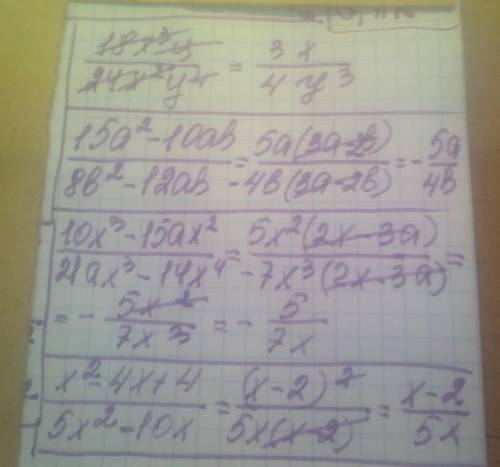 18x³y / 24x²y⁴ = 3x / 4y³
15a² - 10ab / 8b² - 12ab = 5a(3a-2b) / -4b(3a-2b) = - 5a / 4b
10x³ - 15ax² / 21ax³ - 14x⁴ = 5x²(2x-3a) / -7x³(2x-3a) =
= - 5x² / 7x³ = - 5 / 7x
x² - 4x + 4 / 5x² - 10x = (x-2)² / 5x(x-2) = x-2 / 5x